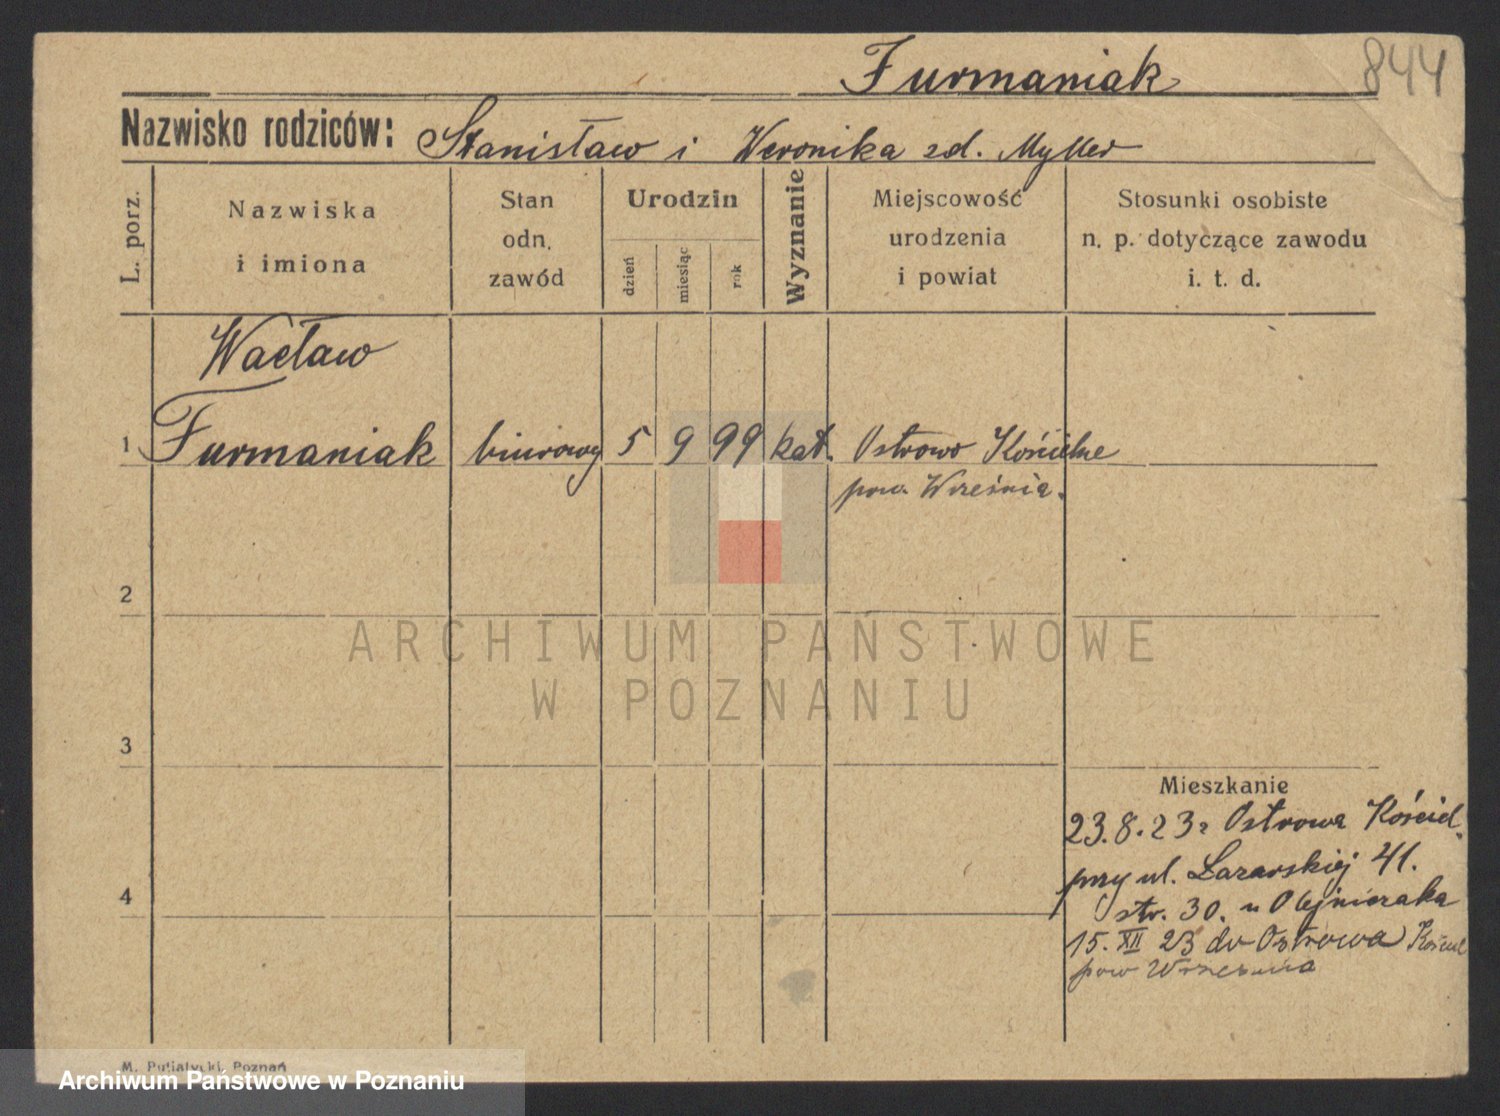 844
Furmaniak
Nazwisko rodziców: Stanisław i Weronika zd. Myller
L. porz.
Nazwiska
i imiona
Stan
odn.
zawód
Urodzin
dzień
miesiąc
rok
Wyznanie
Miejscowość
urodzenia
i powiat
Stosunki osobiste
n. p. dotyczące zawodu
i. t. d.
Wacław
1 Furmaniak biurowy 5 9 99 kat. Ostrowo Kościelne
pow. Września.
2
ARCHIWUM PAŃSTWOWE
W POZNANIU
3
Mieszkanie
23.8.23 z Ostrowa Kościel.
przy ul. Łazarskiej 41.
4
str. 30. u Olejniczaka
15. XII 23 do Ostrowa Kościel
pow Września
M. Putiatycki, Poznań
Archiwum Państwowe w Poznaniu